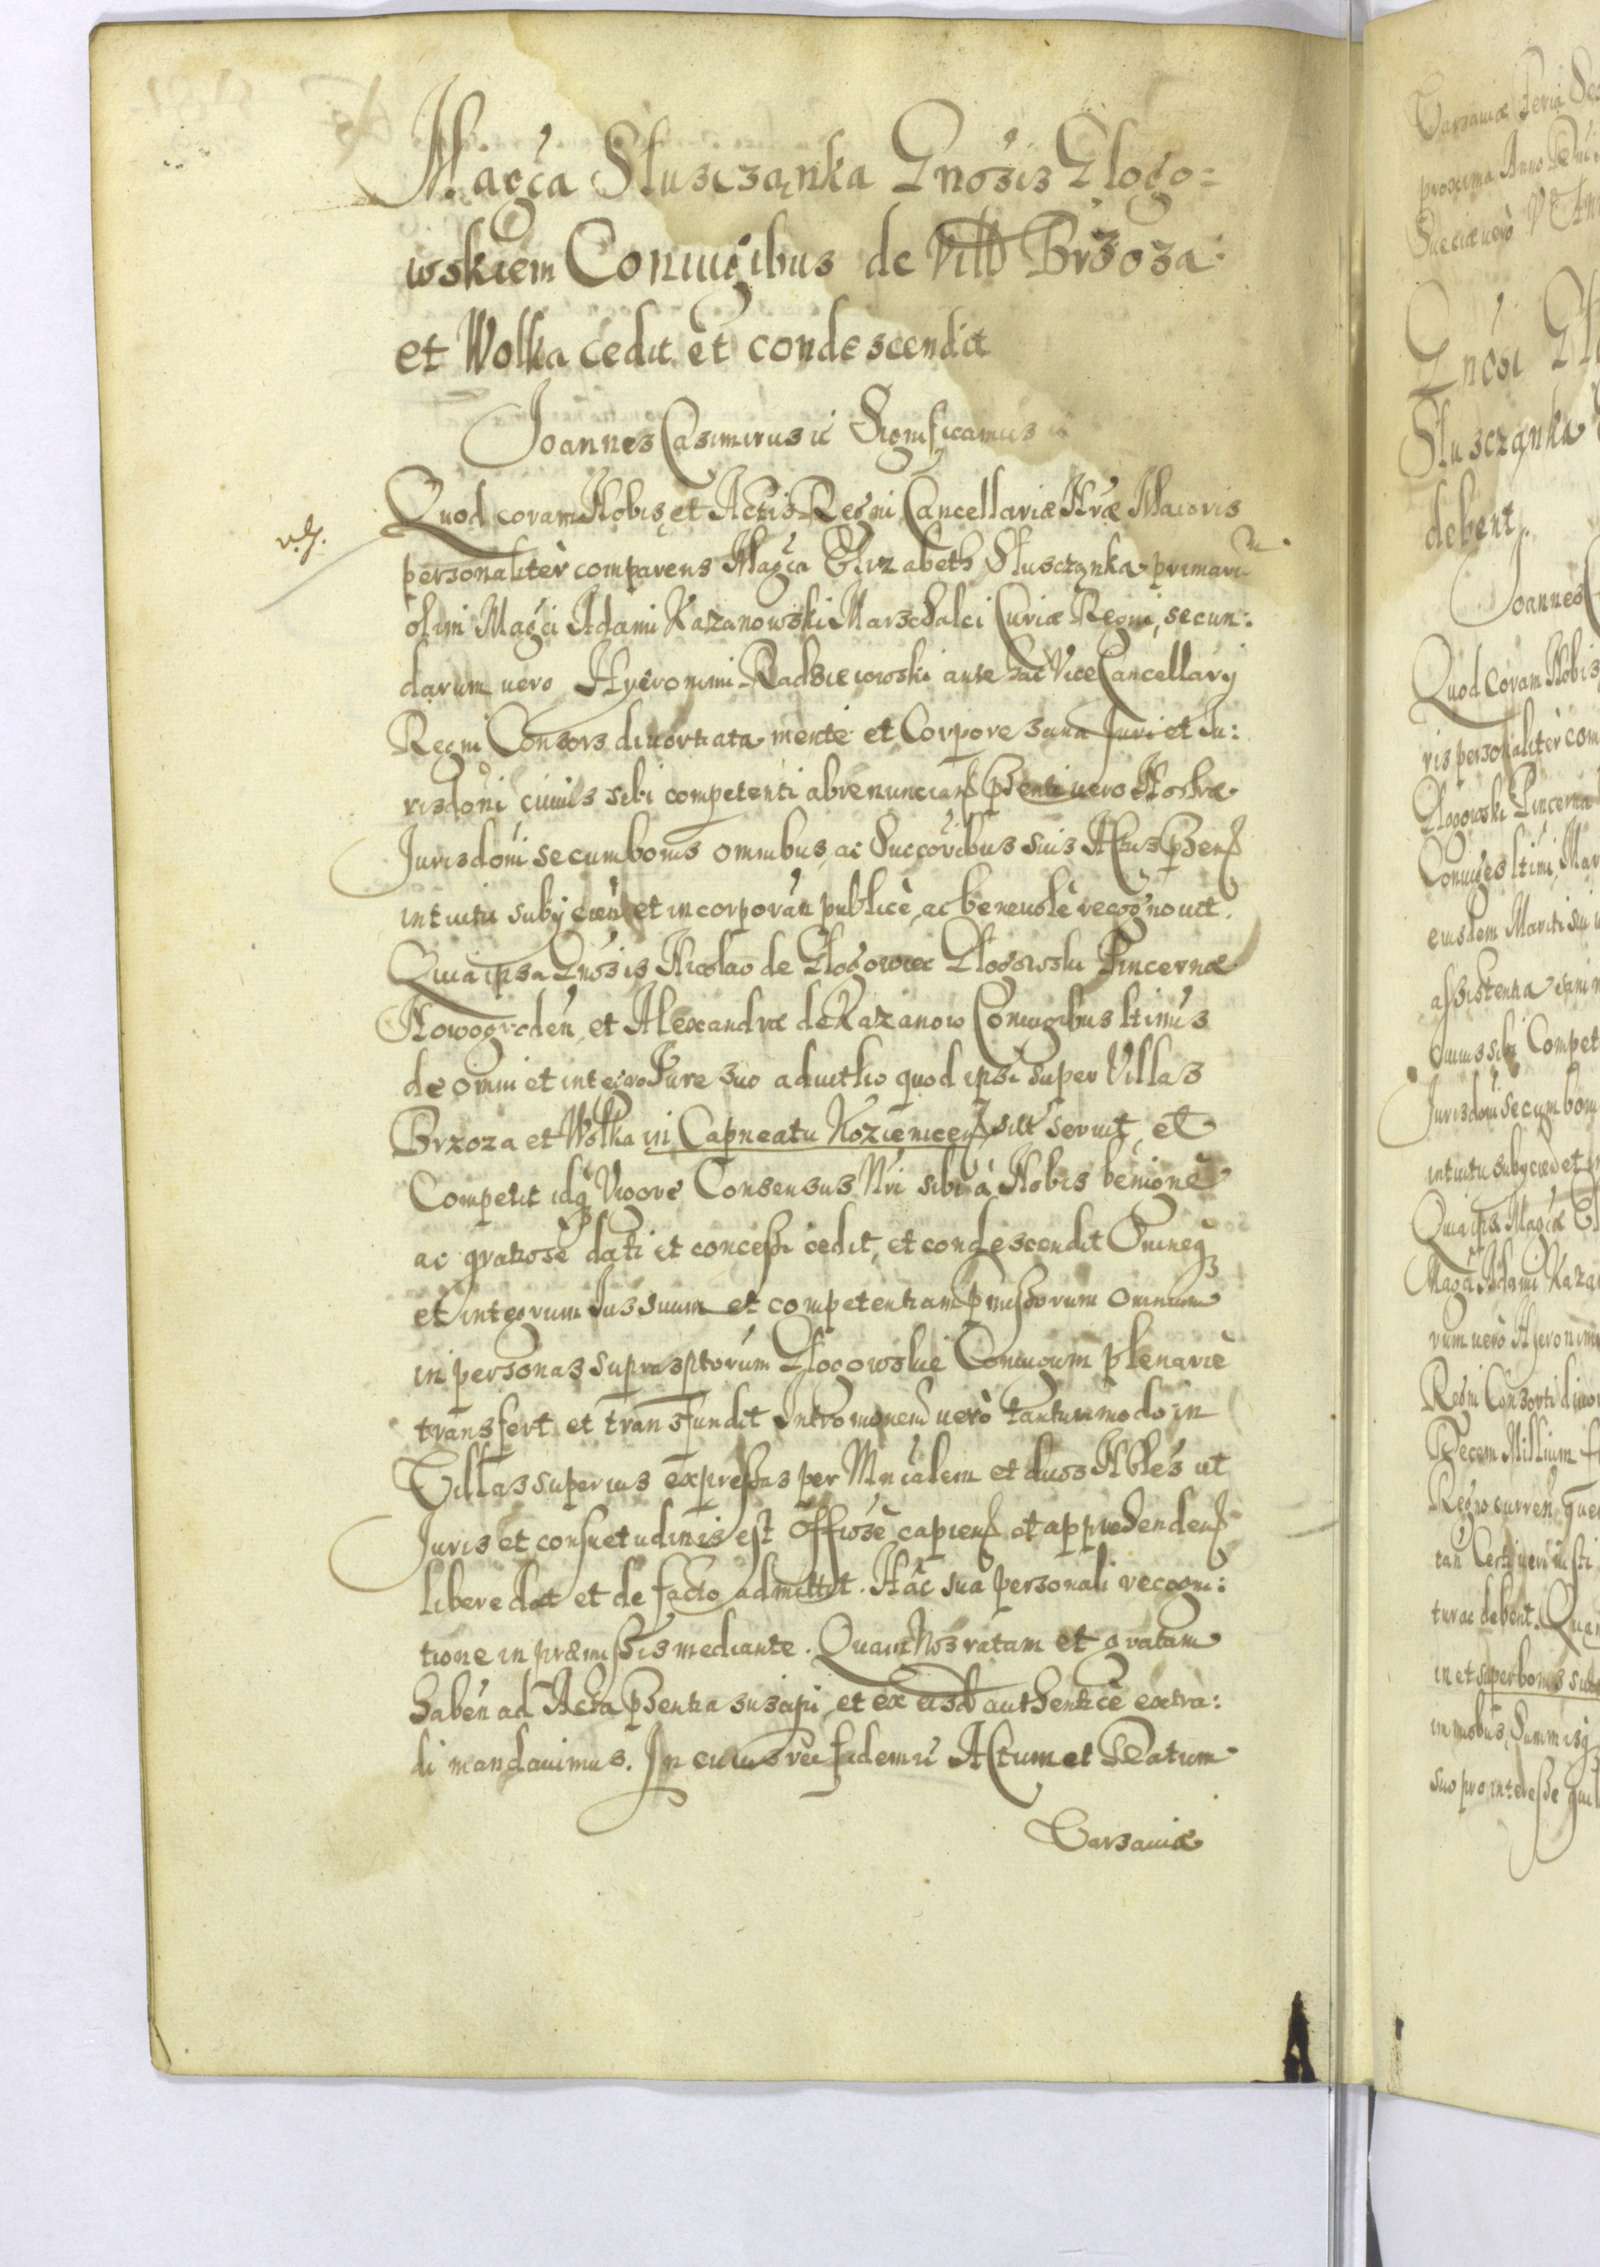 Magca Słusczanka Gnosis Głogo=
wskiem Coniugibus de Vill Brzoza
et Wolka cedit et condescendit
Joannes Casimirus ic Significamus ic
Quod coram Nobis, et Actis Regni Cancellariæ Nræ Maioris
personaliter comparens Magca Elizabeth Słusczynka primarū
olim Magci Adami Kazanowski Marschalci Curiæ Regni, secun:
darum uero Hyeronimi Radzieiowski ante hac Vice Cancellarij
Regni Consors diuortiata mente et Corpore sana Juri et Ju:
risdoni cuius sibi competenti abrenuncians psenti uero Nostræ
Jurisdoni se cum bonis omnibus, ac Succoribus suis Actus psens
intuitu subijcien et incorporan publice, ac beneuole recognouit.
Quia ipsa Gnosis Nicolao de Głogowiec Głogowski Pincernæ
Nowogroden, et Alexandræ de Kazanow Coniugibus ltimis
de omni et integro Jure suo aduitlio quod ipsi super Villas
Brzoza et Wolka in Capneatu Kozienicens sitt seruit, et
Competit idq Vigore Consensus Nri sibi a Nobis benigne
ac gratiose dati et concessi cedit, et condescendit Omneq
et integrum Jus suum et competentiam pmissorum omnium
in personas suprasptorum Głogowskie Coniugum plenarie
transfert et transfundit Intromonem uero tantummodo in
Villas superius expressas per Mnialem et duos Nbles ut
Juris et consuetudinis est Offiose capiens et apprehendens
libere dat et de facto admittit. Hac sua personali recogni:
tione in præmissis mediante. Quam Nos ratam et gratam
haben ad Acta psentia suscipi, et ex eisd authentice extra:
di mandauimus. In cuius rei fidem ic Actum et Datum
Varsauiæ
Varsauiæ Feria
proxima Anno
Sueciæ uero
Gnosi
Słusczanka
debent
Joannes
Quod Coram Nobis
ris personaliter com
Głogowski Pincerna
Coniuges ltimi, Mar
eiusdem Mariti sui
assistentia
cuius sibi Compet
Jurisdoni se cum bonis
intuitu subijcien et in
Quia ipsa Magcæ El
Magci Adami Kaza
rum uero Hyeronimi
Regni Consorti diuor
Decem Millium fl
Regno curren
tur ac debent. Quam
in et super bonis suis
immobus, Summisq
suo pro interesse